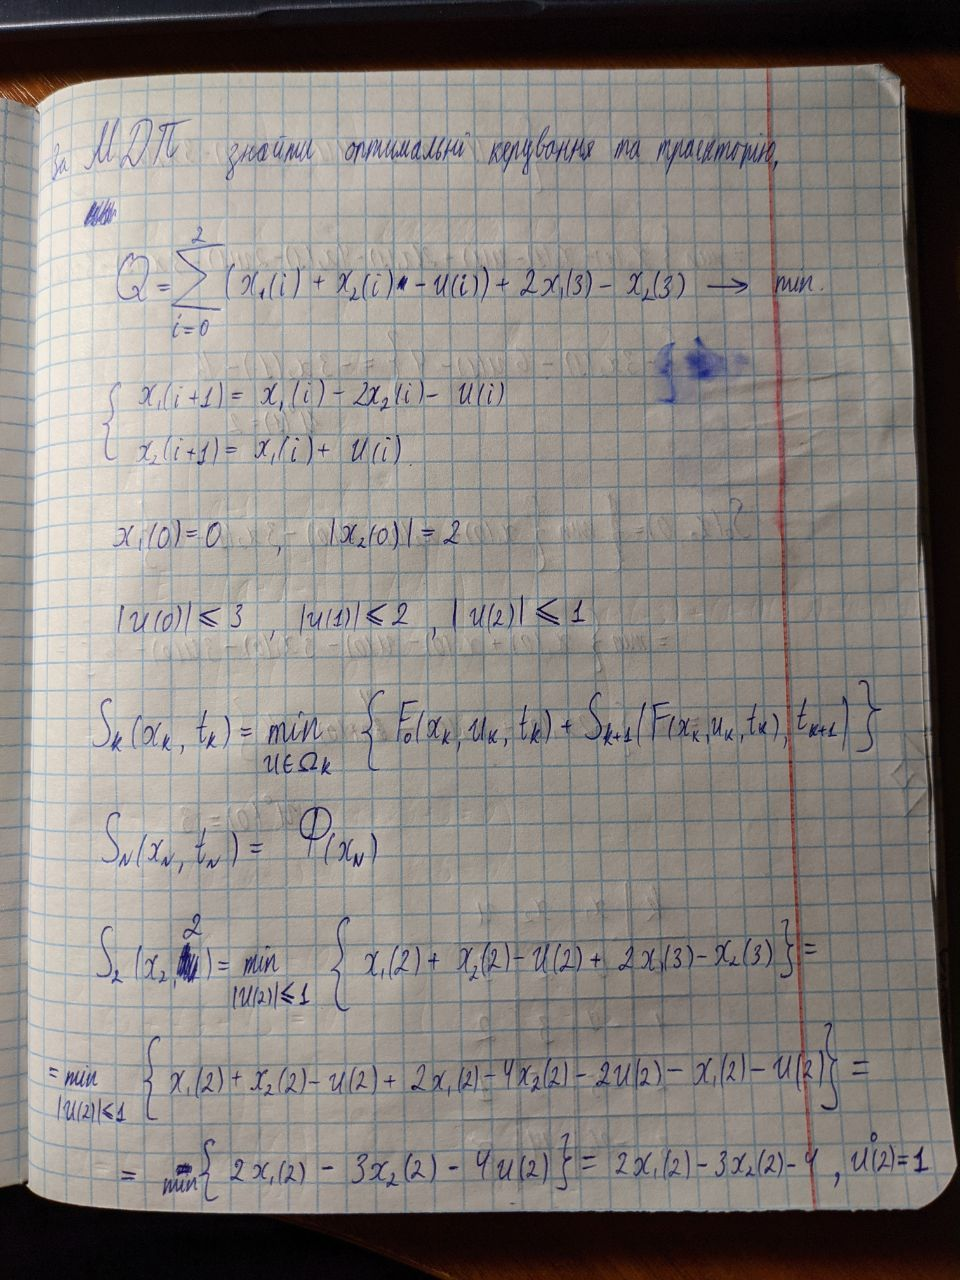 За МДП знайти оптимальні керування та траєкторію,
Q = ∑_{i=0}^{2} (x₁(i) + x₂(i) - u(i)) + 2x₁(3) - x₂(3) → min.
{ x₁(i+1) = x₁(i) - 2x₂(i) - u(i)
x₂(i+1) = x₁(i) + u(i)
x₁(0) = 0 , |x₂(0)| = 2
|u(0)| ⩽ 3 , |u(1)| ⩽ 2 , |u(2)| ⩽ 1
S_k(x_k, t_k) = min_{u∈Ω_k} { F₀(x_k, u_k, t_k) + S_{k+1}(F(x_k, u_k, t_k), t_{k+1}) }
S_N(x_N, t_N) = Φ(x_N)
S₂(x₂, 2) = min_{|u(2)|⩽1} { x₁(2) + x₂(2) - u(2) + 2x₁(3) - x₂(3) } =
= min_{|u(2)|⩽1} { x₁(2) + x₂(2) - u(2) + 2x₁(2) - 4x₂(2) - 2u(2) - x₁(2) - u(2) } =
= min { 2x₁(2) - 3x₂(2) - 4u(2) } = 2x₁(2) - 3x₂(2) - 4 , ů(2) = 1